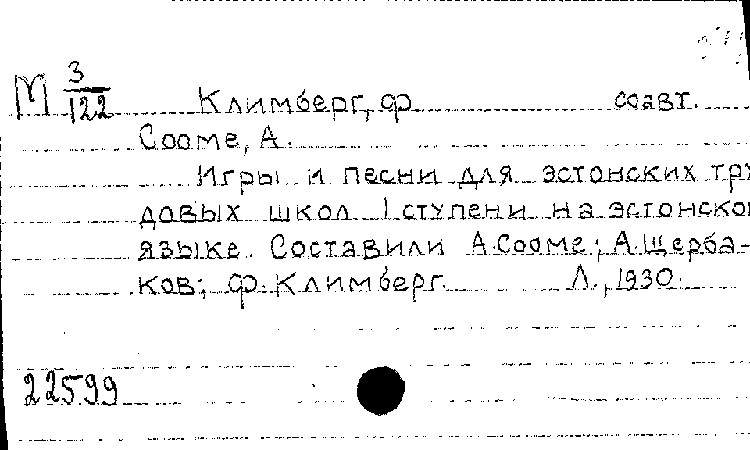 М 3/122 Климберг, Ф. соавт.
Сооме, А.
Игры и песни для эстонских тру
довых школ I ступени на эстонско
языке. Составили А.Сооме; А.Щерба-
ков; Ф.Климберг. Л., 1930.
22599